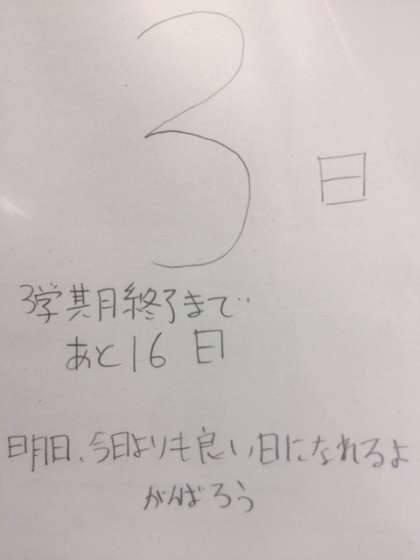 3日
3学期終了まで
あと16日
明日、今日よりも良い日になれるよ
がんばろう